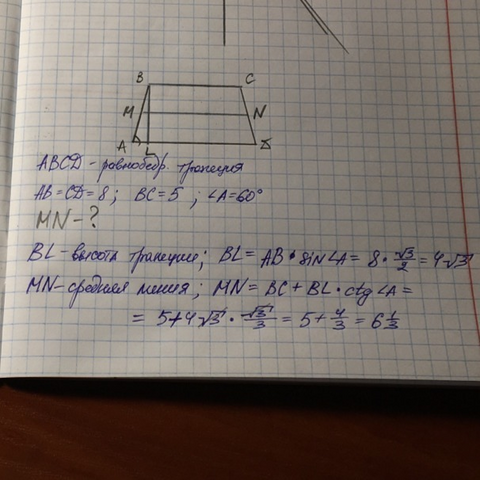 B C
M N
A L D
ABCD - равнобедр. трапеция
AB = CD = 8 ; BC = 5 ; ∠A = 60°
MN - ?
BL - высота трапеции; BL = AB • sin∠A = 8 · √3/2 = 4√3
MN - средняя линия ; MN = BC + BL · ctg∠A =
= 5 + 4√3 · √3/3 = 5 + 4/3 = 6 1/3